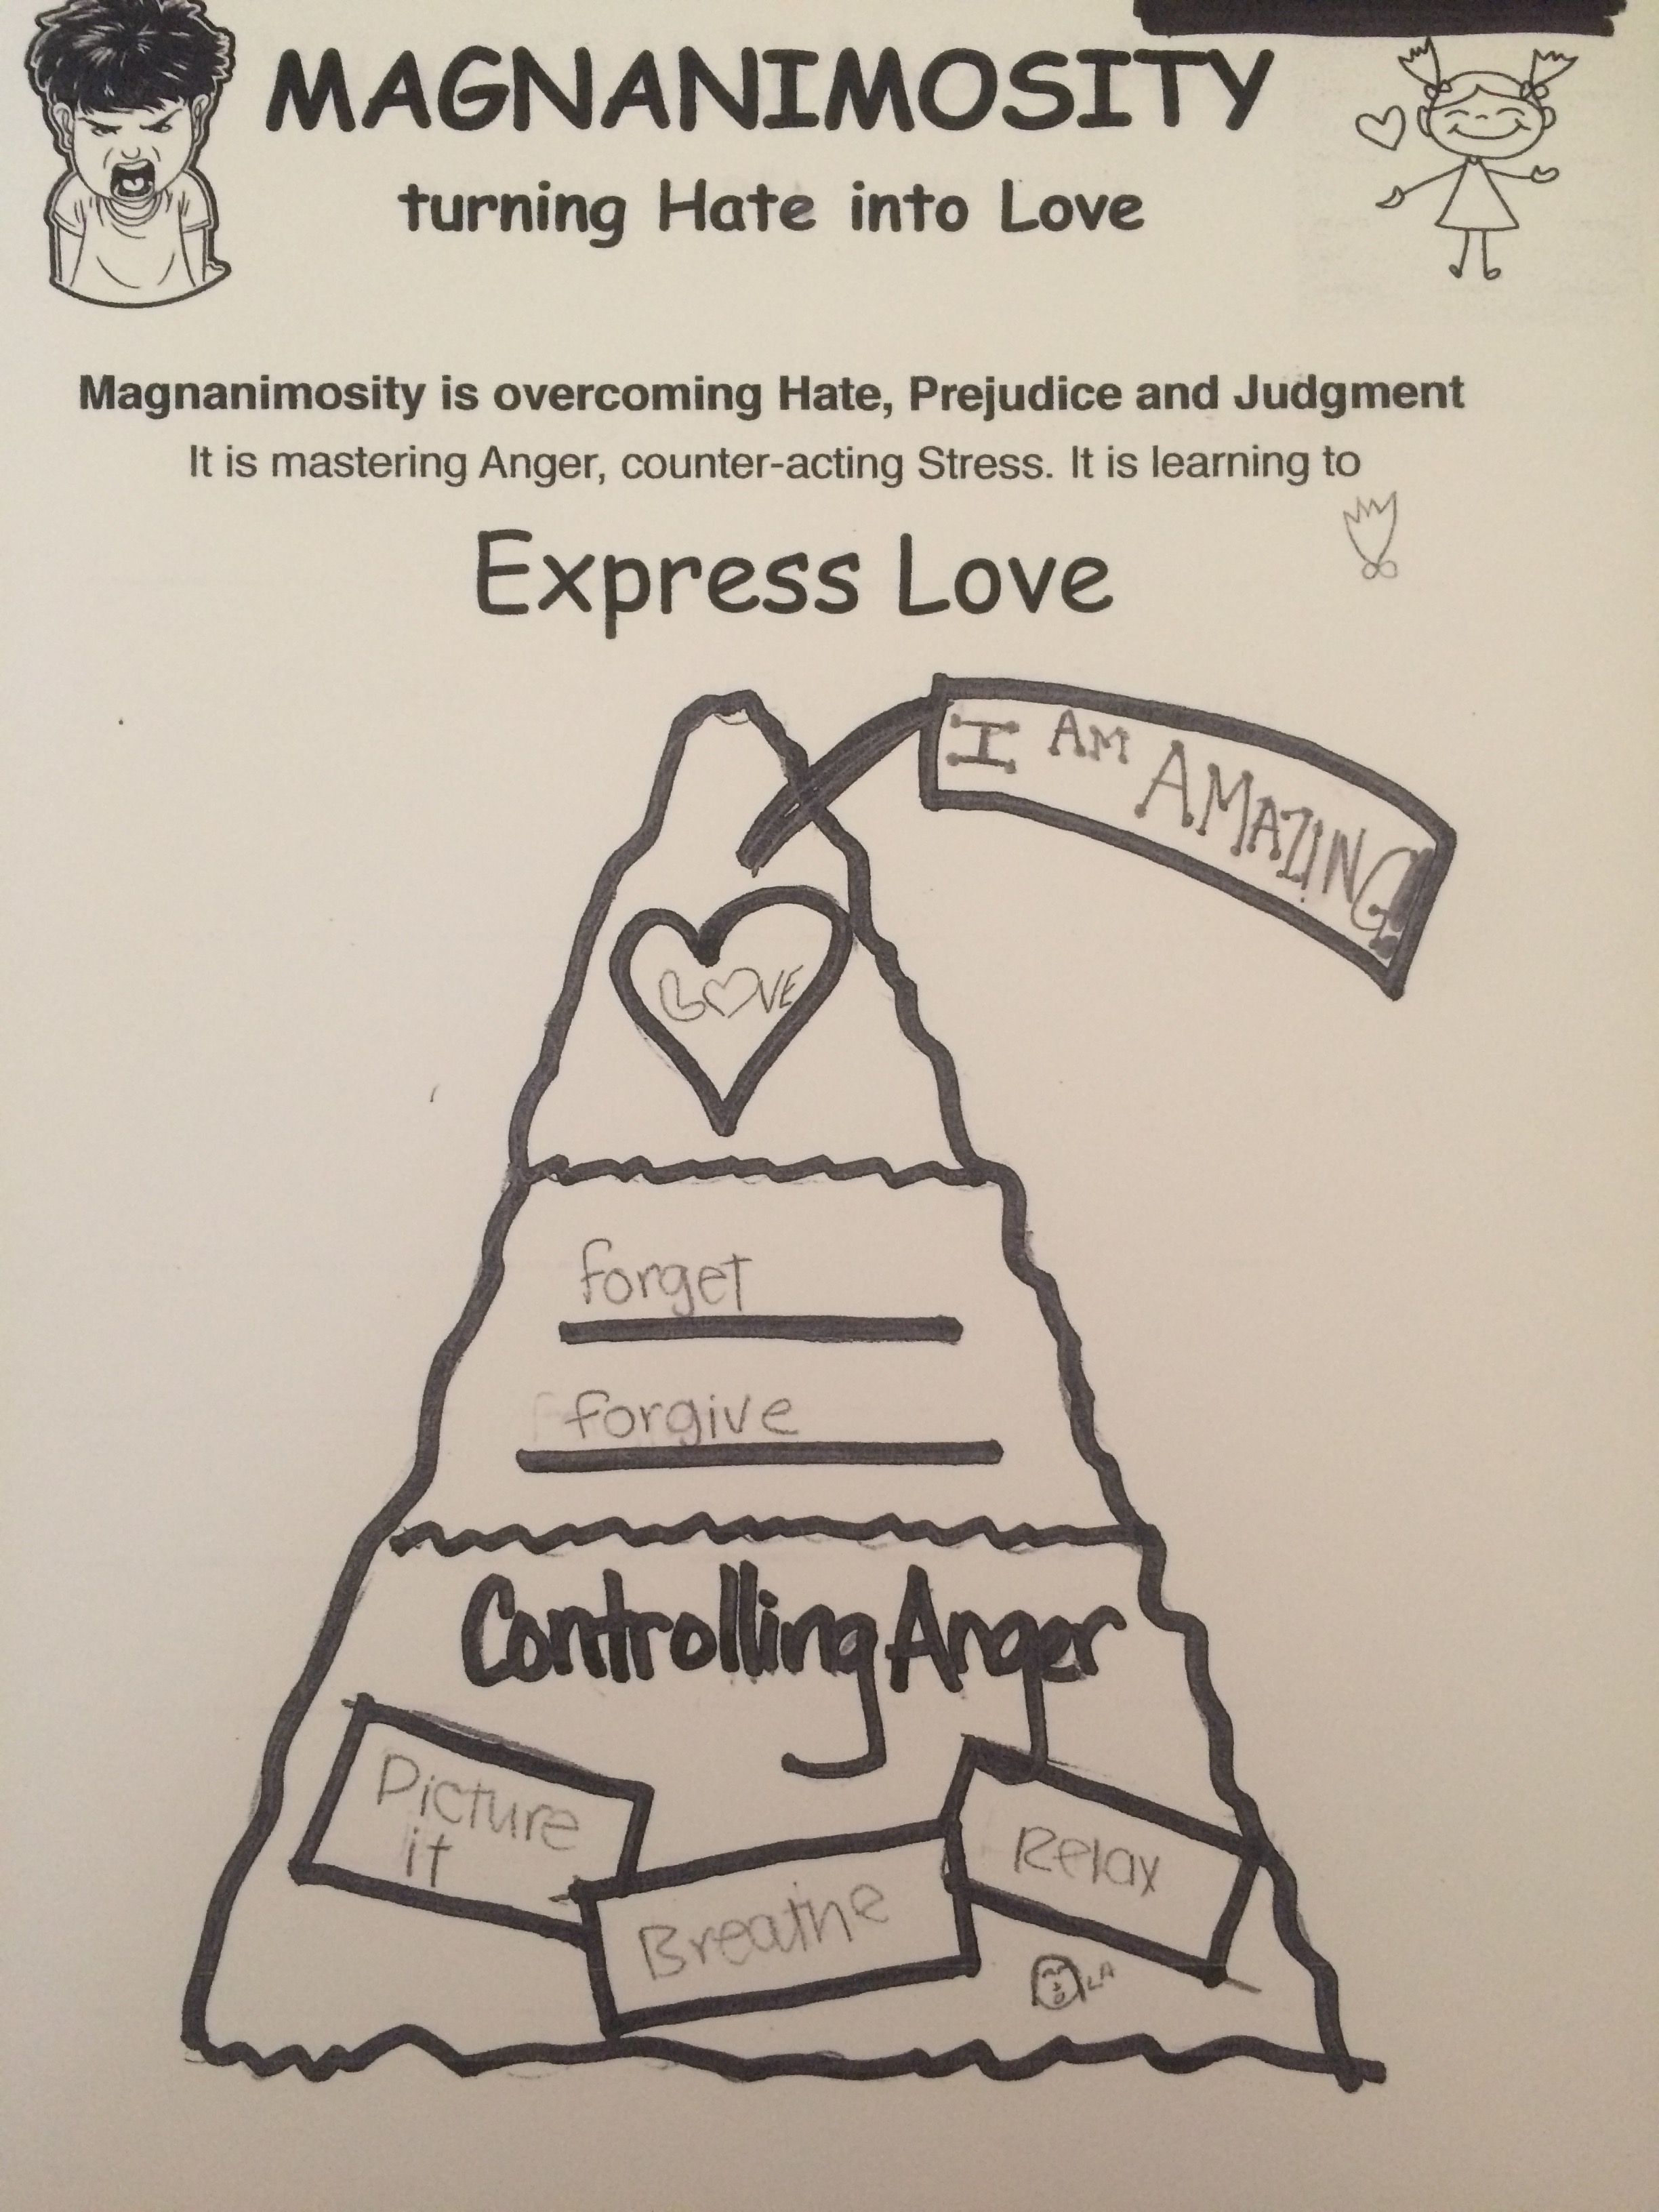 MAGNANIMOSITY
turning Hate into Love
Magnanimosity is overcoming Hate, Prejudice and Judgment
It is mastering Anger, counter-acting Stress. It is learning to
Express Love
I AM AMAZING!
LOVE
forget
forgive
Controlling Anger
Picture
it
Breathe
Relax
LA